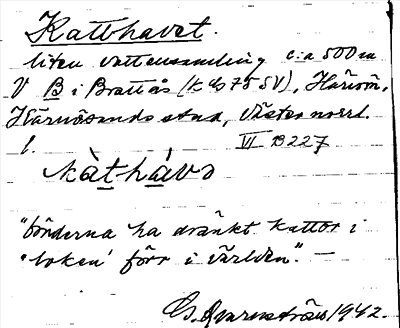 Katthavet.
liten vattensamling c:a 500 m
V B i Brattås (k bl 75 SV), Härnön,
Härnösands stad, Västernorrl.
l. VI B227
kàthávə
"bönderna ha dränkt kattor i
'loken' förr i världen". —
1942.